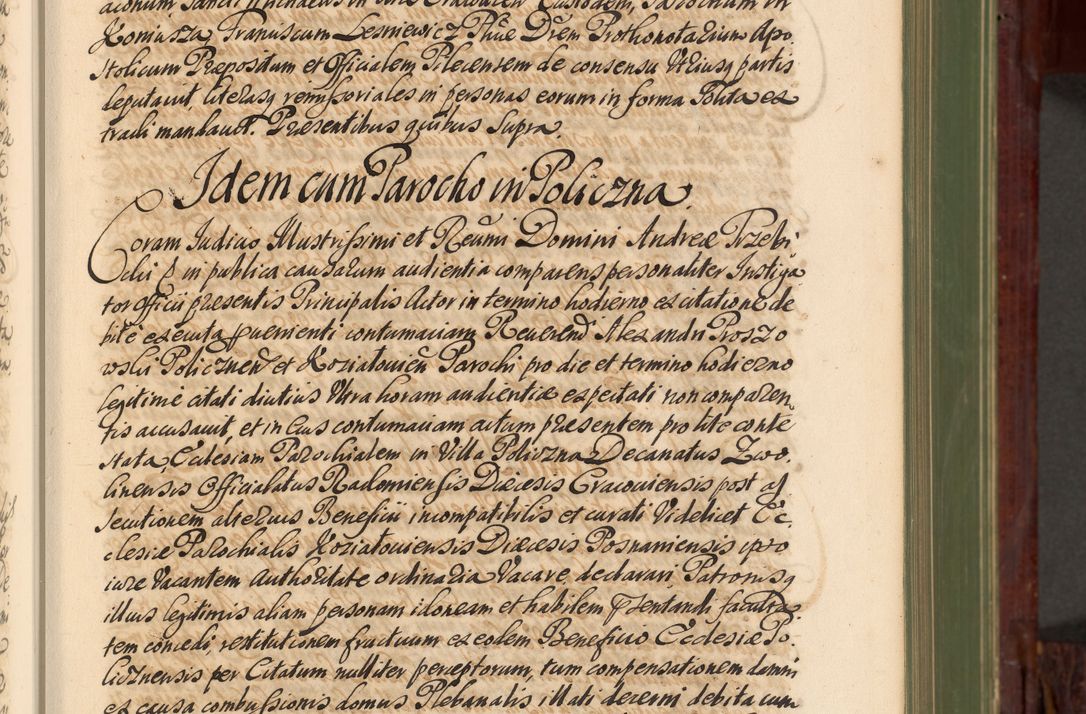 aconum Sancti Michaelis in Arce Cracovien Custodem, Parochum in
Koniusza, Franciscum Lesniewicz Phiae Drem Prothonotarium Apo,
stolicum Praepositum et Officialem Pilecensem de consensu Utriusq partis
deputavit literasq remissoriales in personas eorum in forma Solita ex
tradi mandavit. Praesentibus quibus supra.
Idem cum Parocho in Policzna.
Coram Judicio Illustrissimi et Reumi Domini Andreae Trzebi
ckii in publica causarum audientia comparens personaliter Instiga
tor Officii praesentis Principalis Actor in termino hodierno ex citatione de
bite executa pvenienti contumaciam Reverend Alexandri Proszo
wskii Policznen et Koziatovien Parochi pro die et termino hodierno
legitime citati diutius Ultra horam audientiae expectati non comparen
tis accusavit, et in Eius contumaciam actum praesentem pro lite conte
stata, Ecclesiam Parochialem in Villa Policzna Decanatus Zwo,
linensis Officialatus Radomiensis Diaecesis Cracoviensis post as
secutionem alterius Beneficii incompatibilis et curati Videlicet Ec,
clesiae Parochialis Koziatoviensis Diaecesis Posnaniensis ipso
iure Vacantem Authoritate ordinaria Vacare declarari Patronisq
illius legitimis aliam personam idoneam et habilem psentandi faculta
tem concedi, restitutionem fructuum ex eodem Beneficio Ecclesiae Po,
licznensis per Citatum nulliter perceptorum, tum compensationem damni
ex causa combustionis domus Plebanalis illati decerni debita cum